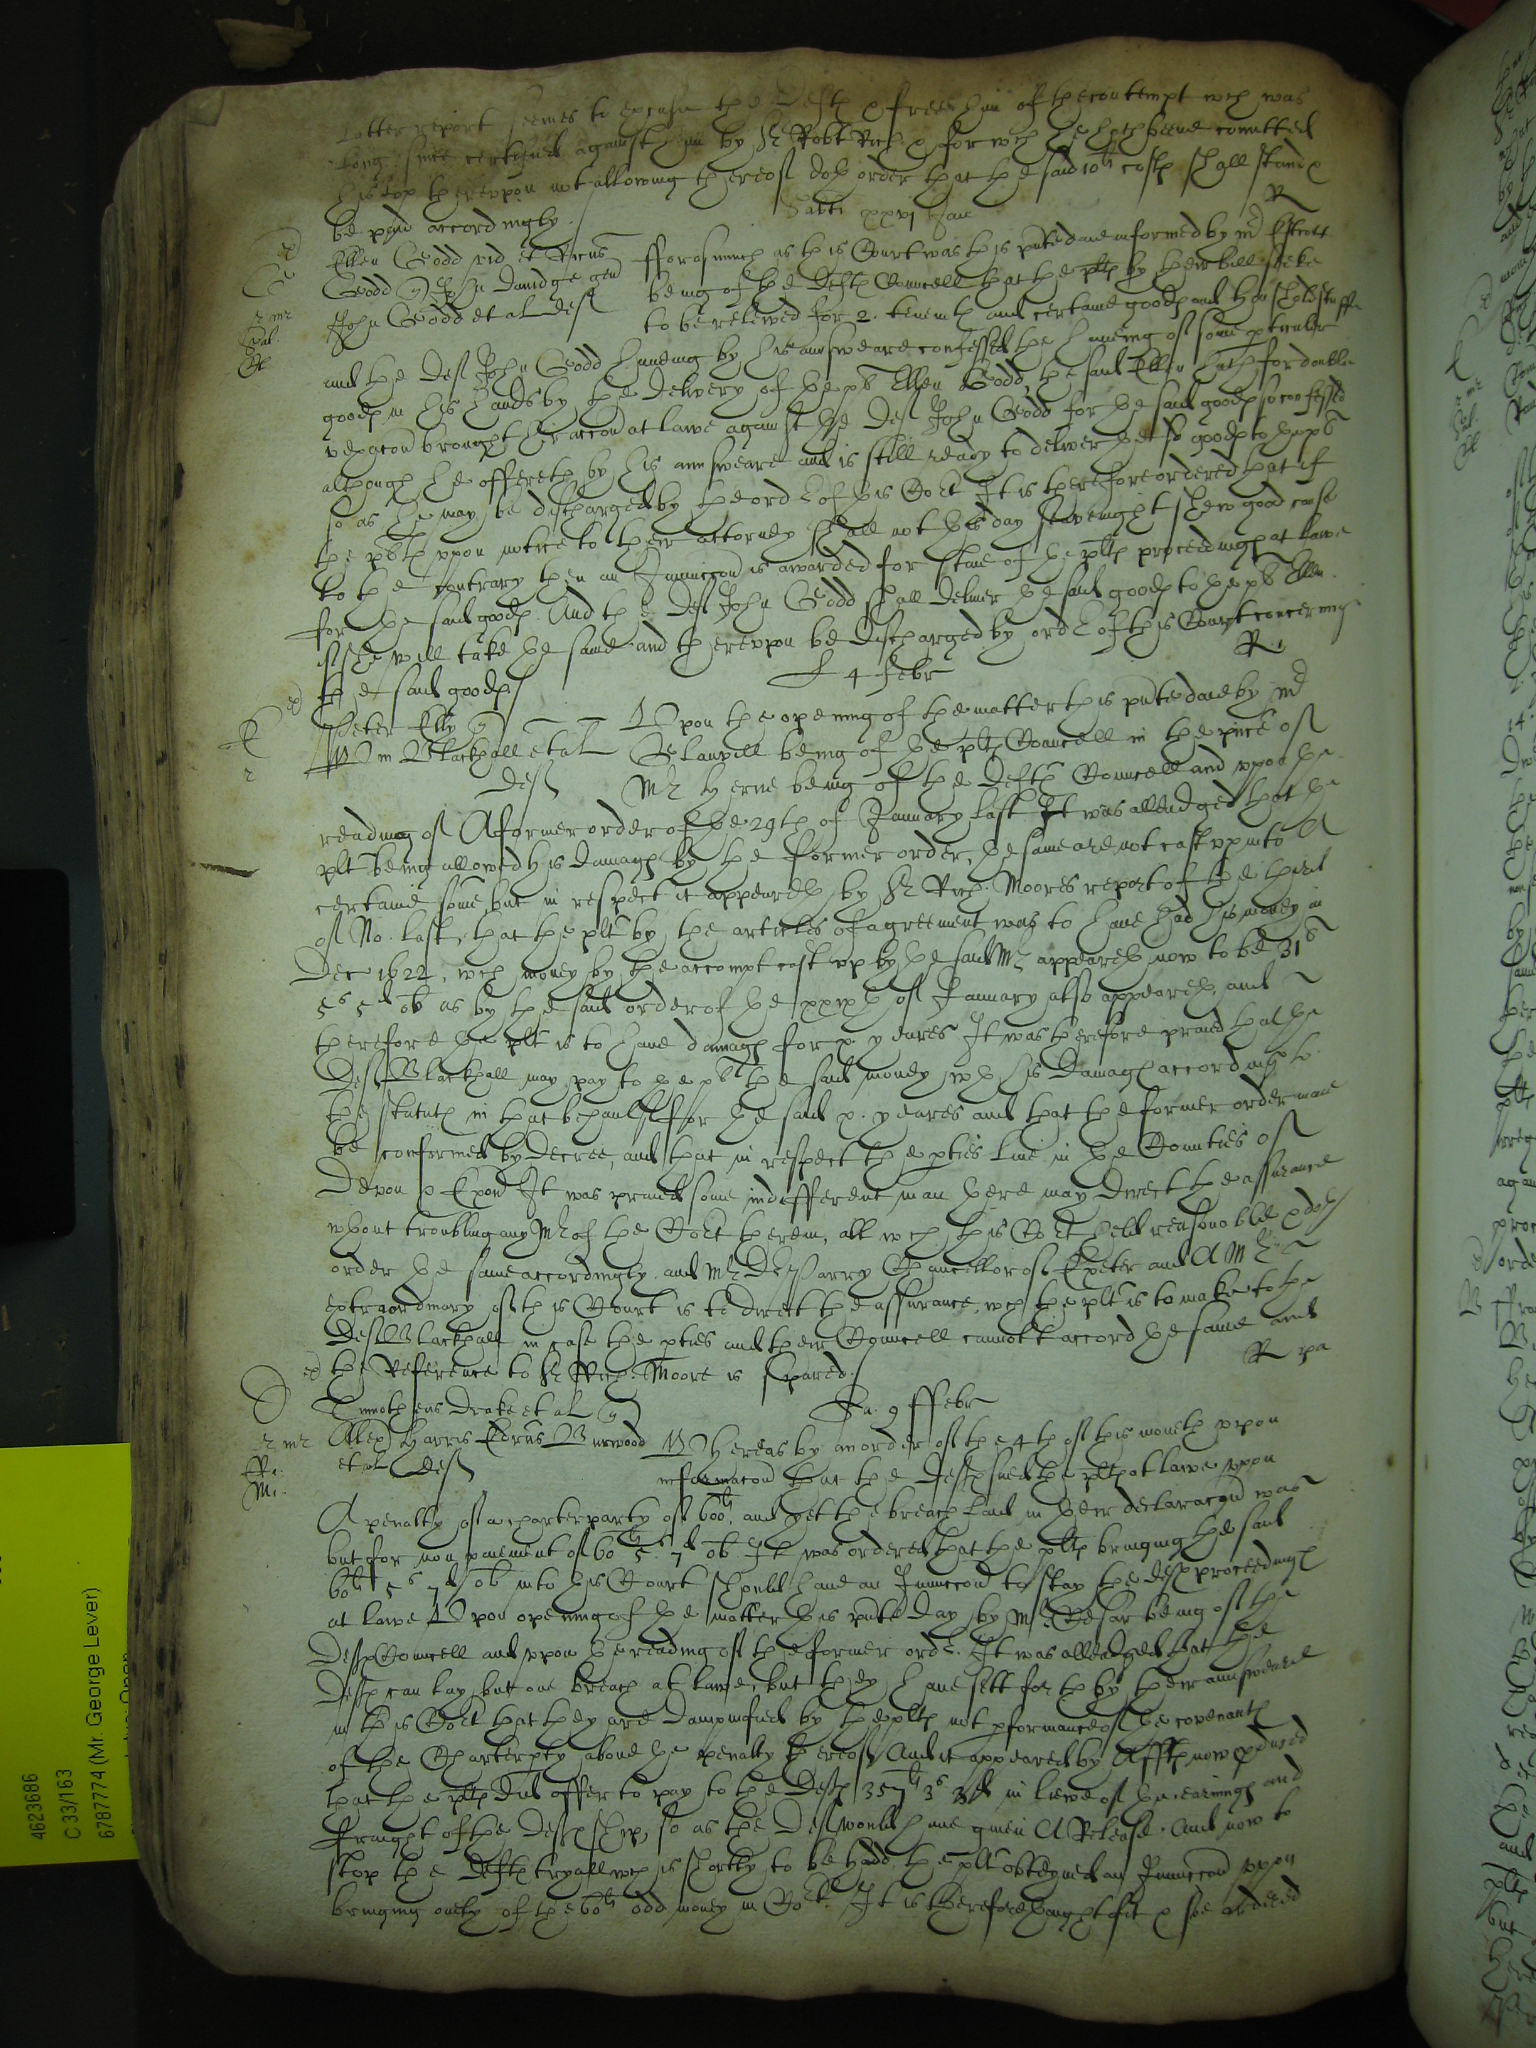 latter report seemes to excuse the Defts & frees him of the contempt wch was
long since certified against him by Sr Robt Rich & for wch he hath beene comitted
his Lop therevpon not allowing thereof doth order that the said 10li costs shall stand &
be payd accordingly.
R
Sabti xxvj Jan
Ellen Geodd vid et Ricus
Geodd q John Damidge gen
John Geodd et al Def
fforasmuch as this Court was this pnte daie informed by mr Estcott
being of the Defts Councell that the plts by their bill seeke
to be releived for 2. tenemts and certaine goods and houshold stuffe
and the Def John Geodd haueing by his answeare confessed the haueing of some pticuler
goods in his hands by the delivery of the pls Ellen Geodd, the said Ellen hath for double
vexacon brought her accon at lawe against the Def John Geodd for the said goods so confessed
although he offereth by his answeare and is still ready to deliver the sd goods to the pls
so as he may be discharged by the order of this Cort It is therefore ordered that if
the pls vpon notice to their attorney shall not this day seavenight shew good cause
to the contrary then an Iniunccon is awarded for staie of the plts proceedings at lawe
for the said goods. And the Def John Geodd shall deliver the said goods to the pls Ellen
if she will take the same and therevpon be discharged by order of this Court concerning
the said goods
R
4 febr
Peter Elly q
Wm Blackhall et al
Def
Vpon the opening of the matter this pnte daie by mr
Glanvill being of the plts Councell in the pnce of
Mr Herne being of the Defts Councell and vpon the
reading of A former order of the 29th of January last It was alleadged that the
plt being allowed his damags by the former order, the same are not cast vp into A
certaine some but in respect it appeareth by Sr Rich. Moores report of the third
of No. last, that the plt by the articles of agreement was to haue had his money in
Dec 1622, wch money by the accompt cast vp by the said Mr appeareth now to be 31li
5s 5d ob as by the said order of the xxixth of January also appeareth, and
therefore the plt is to haue damags for x yeares It was therefore praied that the
Def Blackhall may pay to the pl the said money wth his damags according to
the statute in that behaulf for the said x. yeares and that the former order maie
be confirmed by decree, and that in respect the pties liue in the Counties of
Devon & Exon It was praied some indifferent man there may direct the assurance
wthout troubling any Mr of the Cort therein, all wch this Cort held reasonable & doth
order the same accordingly. and Mr Dr Barry Chancellor of Exeter and A Mr
extraordinary of this Court is to direct the assurance, wch the plt is to make to the
Def Blackhall in case the pties and their Councell cannott accord the same and
the Reference to Sr Rich. Moore is spared.
R pa
Timotheus Drake et al q
Allex Harris Edrus Burwood
et al Def
Sa. 9 ffebr
Whereas by an order of the 4th of this moneth vpon
informacon that the Defts sued the plts at lawe vpon
A penalty of a charterparty of 600li, and yet the breach laid in their declaracon was
but for non paiement of 60li 5s 7d ob It was ordered that the plts bringing the said
60li 5s 7d ob into this Court should haue an Iniunccon to stay the defs proceedings
at lawe Vpon opening of the matter this pnte day by Mr Cesar being of the
Defts Councell and vpon the reading of the former order. It was alleadged that the
Defts can lay but one breach at lawe, but they haue sett forth by their answeare
in this Cort that they are dampnified by the plts not pformance of the covenants
of the Charterpty aboue the penalty thereof And it appeared by Affts now produced
that the plts did offer to pay to the Defts 357li 3s 3d in liewe of the earnings and
fraight of the Defts ship, so as the Def would haue giuen A Release. And now to
stop the Defts tryall wch is shortly to be hadd the plts obteyned an Iniunccon vpon
bringing onely of the 60li odd money in Cort. It is therefore thought fit & soe ordered
4623686
C 33/163
6787774 (Mr. George Lever)